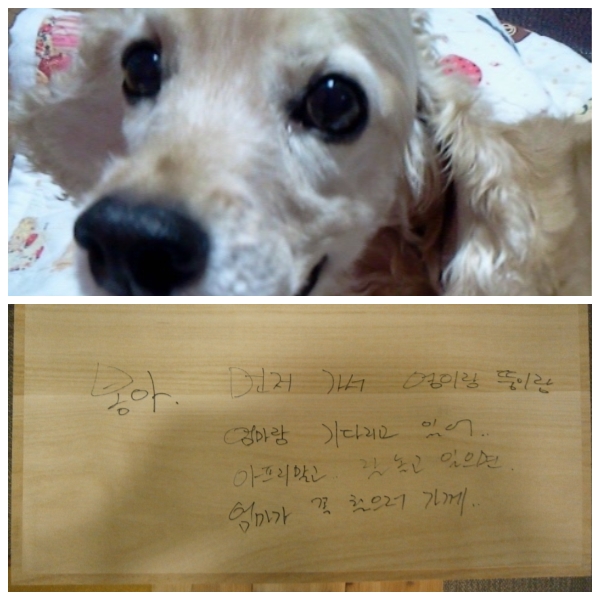 몽아. 먼저 가서 엄이랑 뚱이랑
엄마랑 기다리고 있어..
아프지말고.. 잘 놀고 있으면.
엄마가 꼭 찾으러 가께..